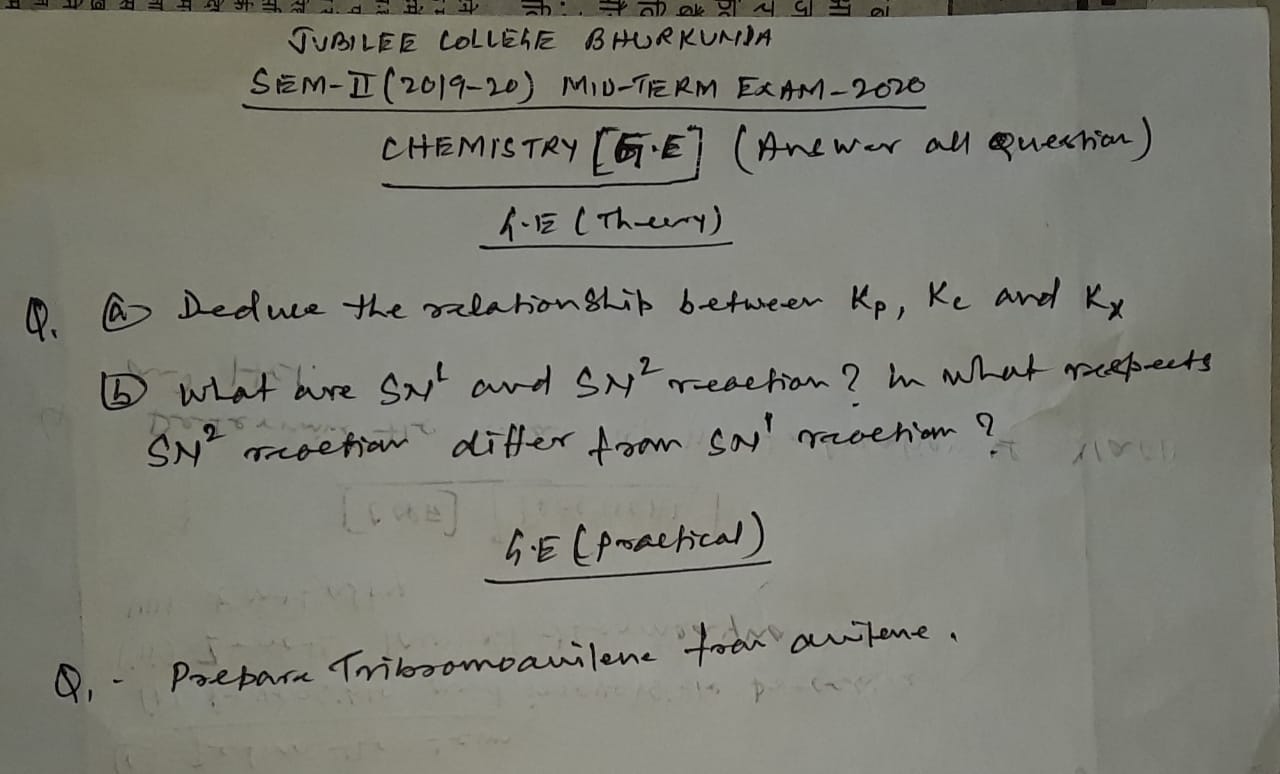 JUBILEE COLLEGE BHURKUNDA
SEM-II (2019-20) MID-TERM EXAM-2020
CHEMISTRY [G.E] (Answer all Question)
G.E (Theory)
Q. (a) Deduce the relationship between Kp, Kc and Kx
(b) What are SN¹ and SN² reaction? In what respects
SN² reaction differ from SN¹ reaction?
G.E (Practical)
Q. - Prepare Tribromoanilene from anilene.